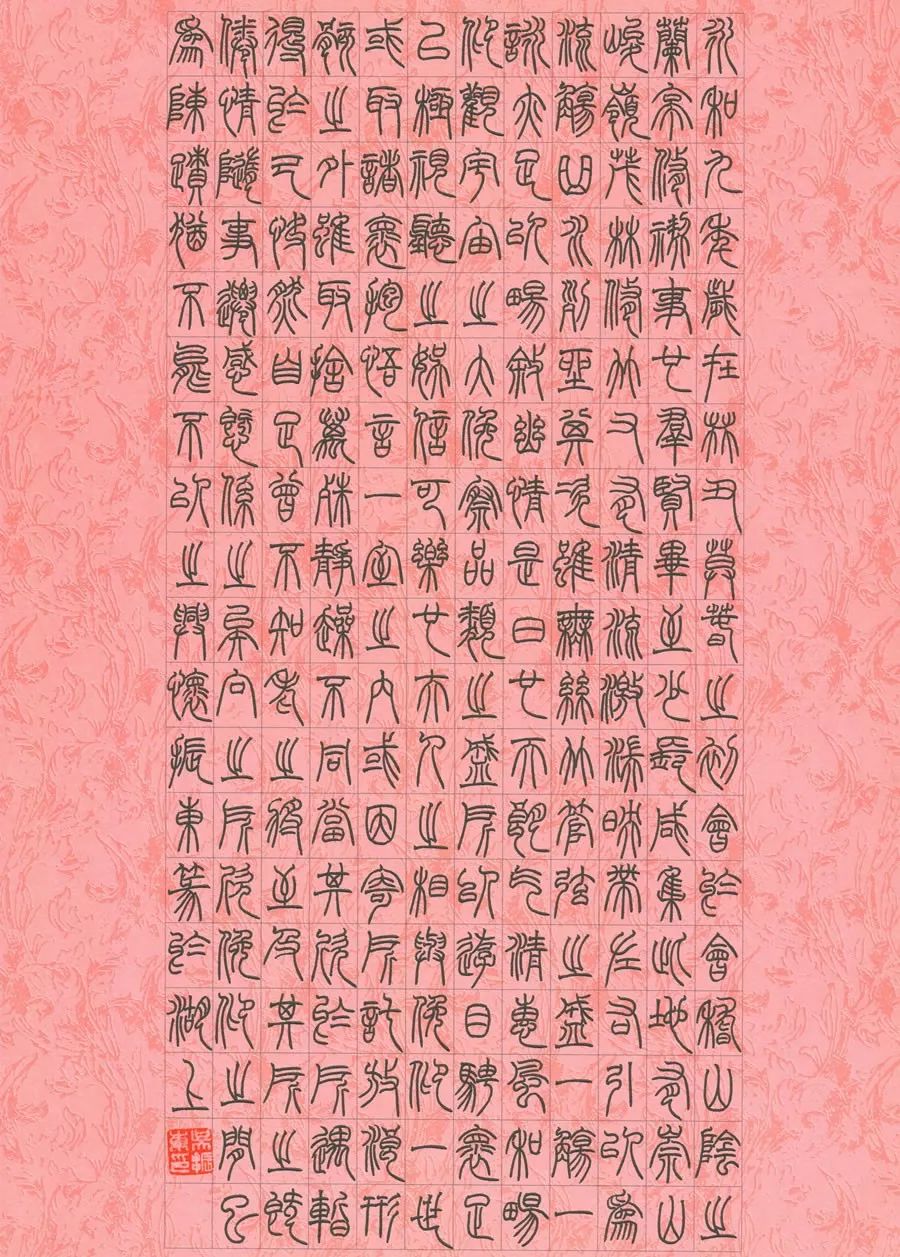 永和九年歲在癸丑莫春之初會於會稽山陰之
蘭亭修禊事也群賢畢至少長咸集此地有崇山
峻嶺茂林修竹又有清流激湍映帶左右引以為
流觴曲水列坐其次雖無絲竹管弦之盛一觴一
詠亦足以暢敘幽情是日也天朗气清惠風和暢
仰觀宇宙之大俯察品類之盛所以遊目騁懷足
以極視聽之娛信可樂也夫人之相與俯仰一世
或取諸懷抱悟言一室之內或因寄所託放浪形
骸之外雖取捨萬殊靜躁不同當其欣於所遇暫
得於己快然自足曾不知老之將至及其所之既
倦情隨事遷感慨係之矣向之所欣俯仰之間已
為陳蹟猶不能不以之興懷振東篆於湖上
吳振東印